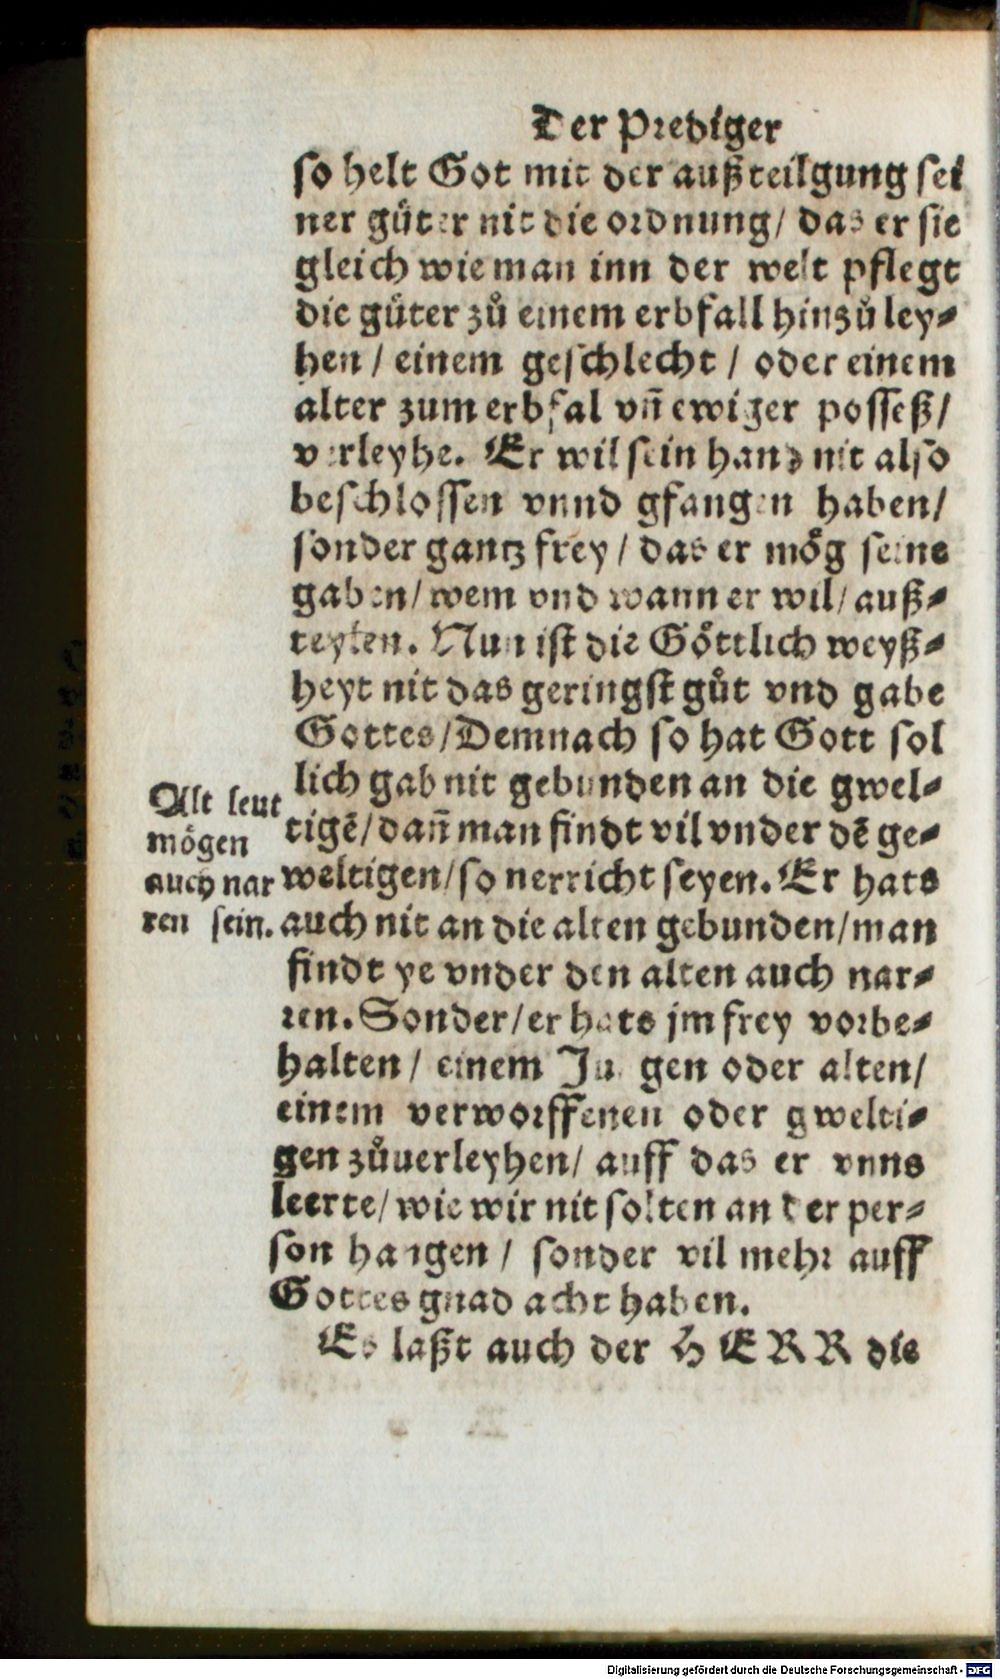 Der Prediger
so helt Got mit der außteilgung sei
ner güter nit die ordnung/ das er sie
gleich wie man inn der welt pflegt
die güter zů einem erbfall hinzůley⸗
hen / einem geschlecht / oder einem
alter zum erbfal vñ ewiger posseß/
verleyhe. Er wil sein hand nit also
beschlossen vnnd gfangen haben/
sonder gantz frey / das er mög seine
gaben/ wem vnd wann er wil/ auß⸗
teylen. Nun ist die Göttlich weyß⸗
heyt nit das geringst gůt vnd gabe
Gottes/Demnach so hat Gott sol
lich gab nit gebunden an die gwel⸗
tigẽ/ dañ man findt vil vnder dẽ ge⸗
weltigen/so nerricht seyen. Er hats
auch nit an die alten gebunden/man
findt ye vnder den alten auch nar⸗
ren. Sonder/er hats jm frey vorbe⸗
halten / einem Jungen oder alten/
einem verworffenen oder gwelti⸗
gen zůuerleyhen/ auff das er vnns
leerte/ wie wir nit solten an der per⸗
son hangen / sonder vil mehr auff
Gottes gnad acht haben.
Es laßt auch der HERR die
Alt leut
mögen
auch nar
ren sein.
Digitalisierung gefördert durch die Deutsche Forschungsgemeinschaft - DFG